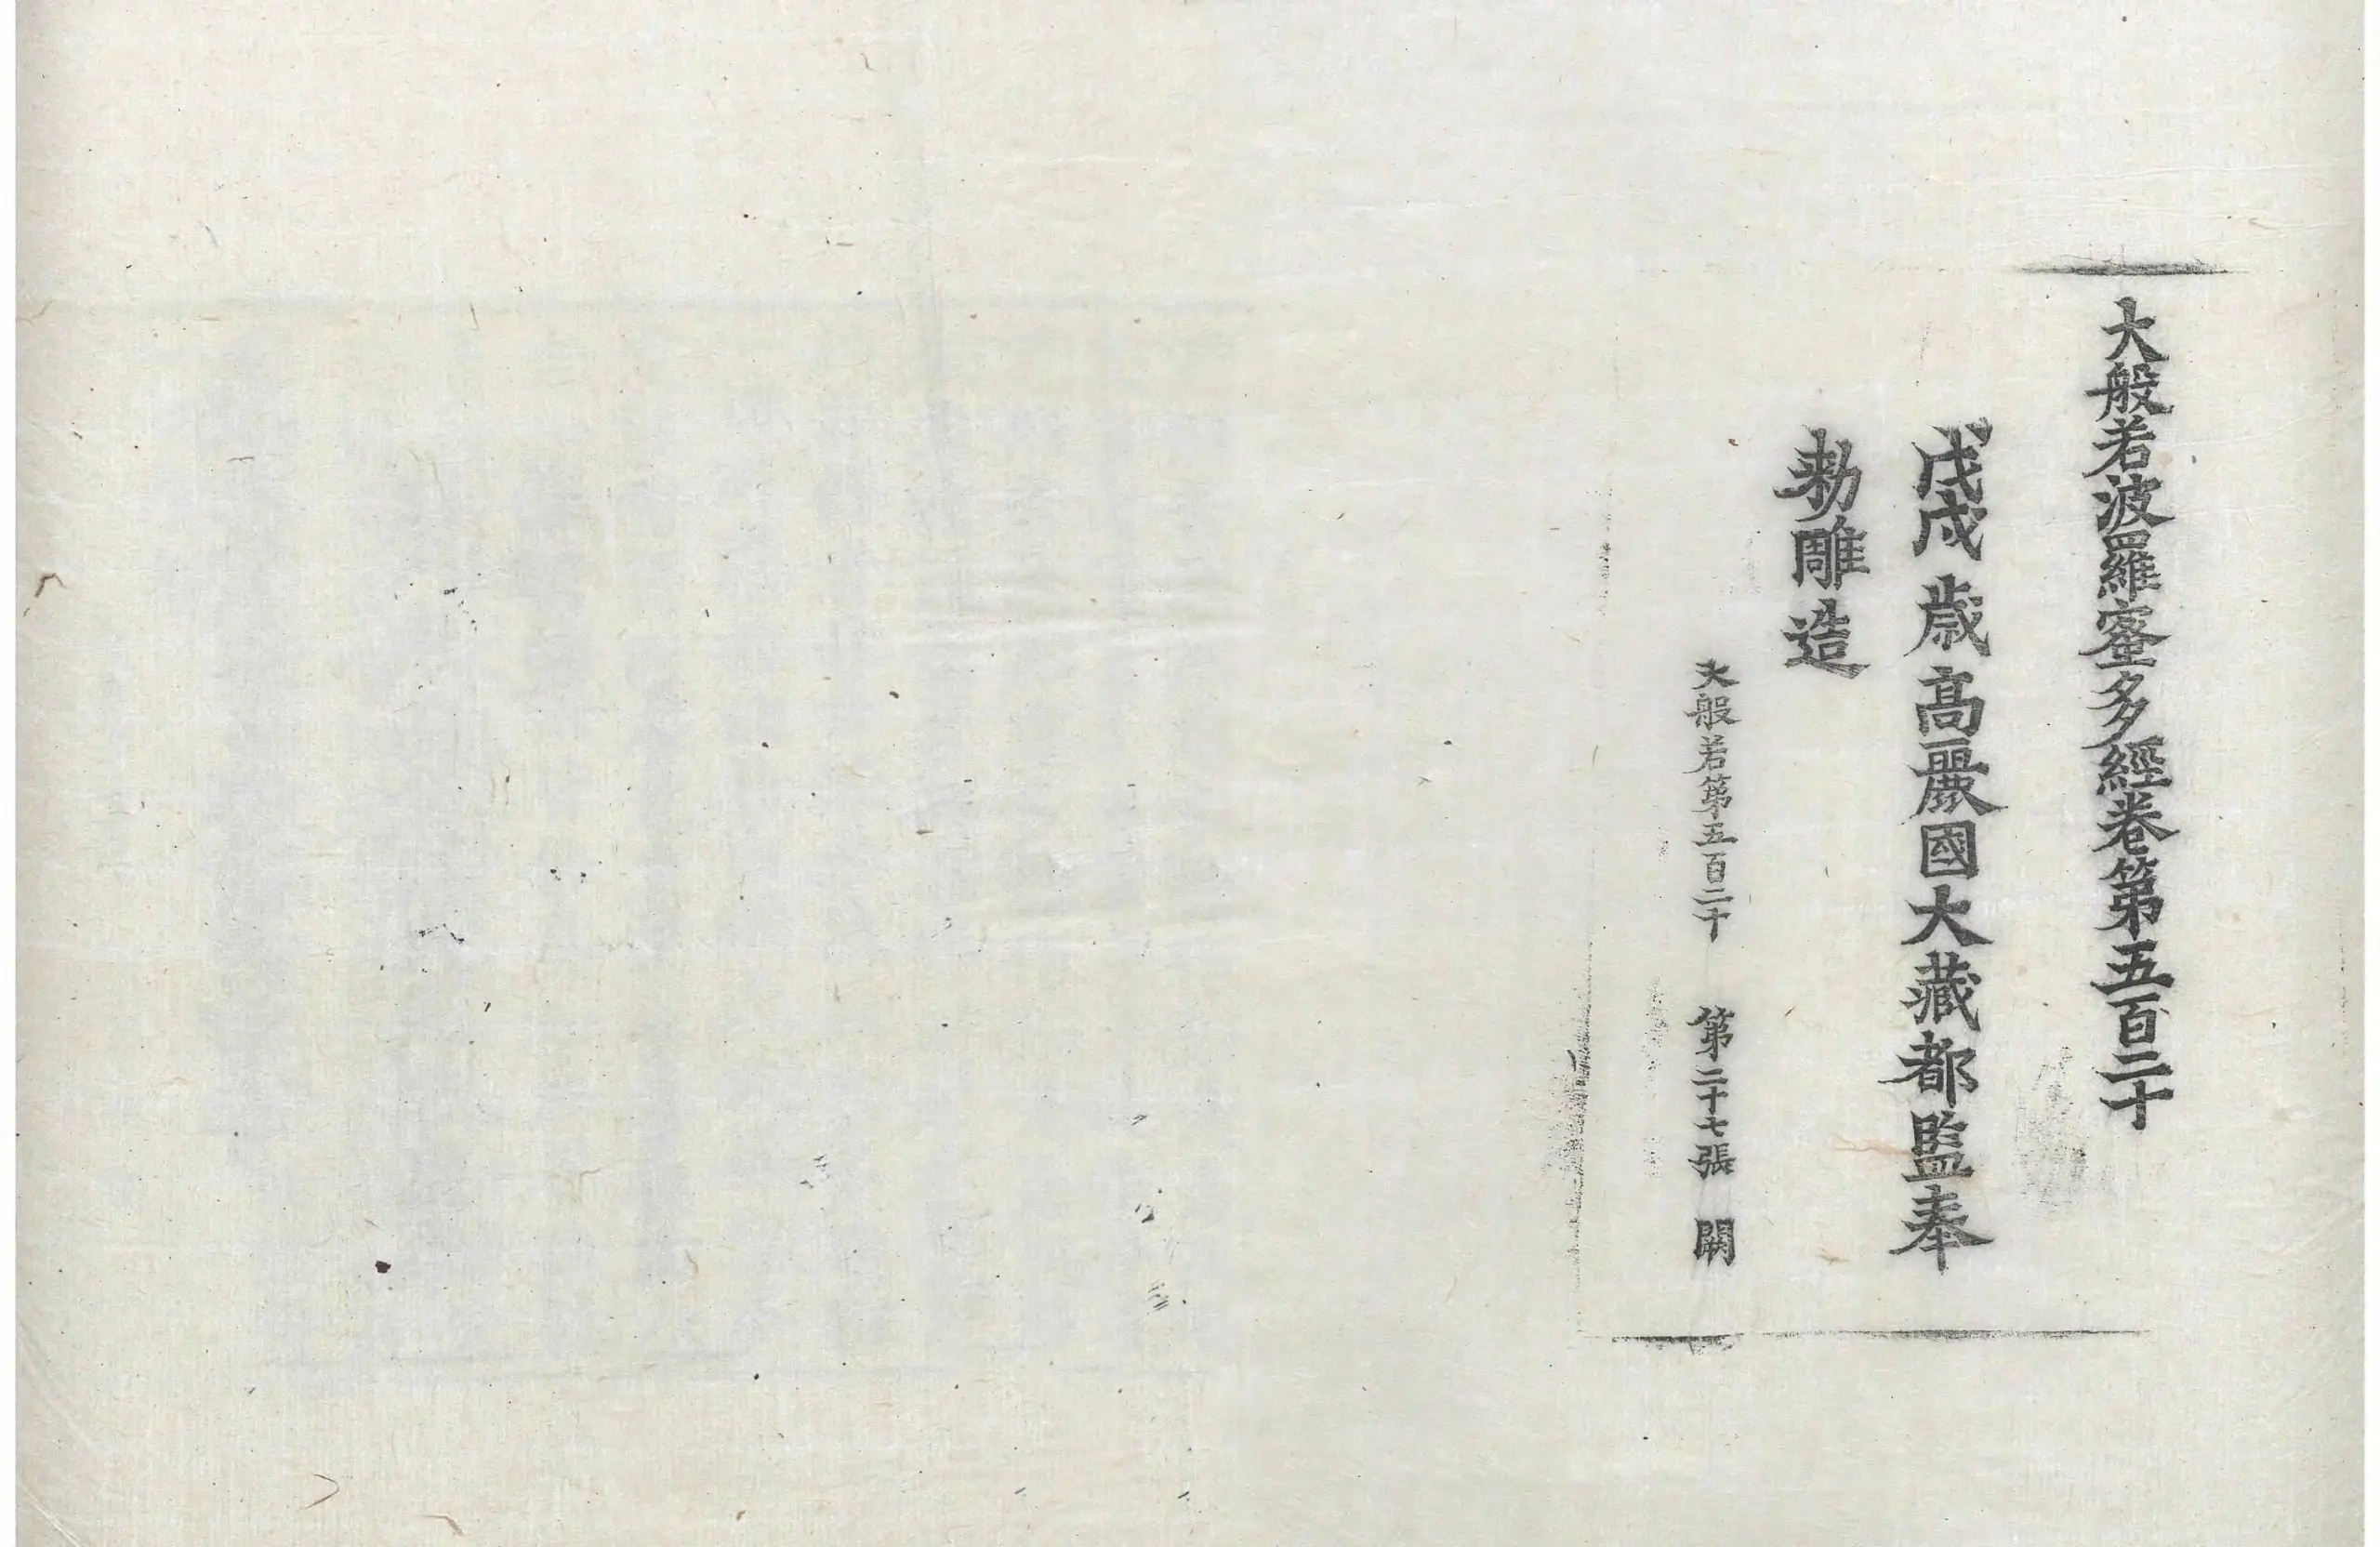 大般若波羅蜜多經卷第五百二十
戊戌歲高麗國大藏都監奉
勑雕造
大般若第五百二十　第二十七張　闕